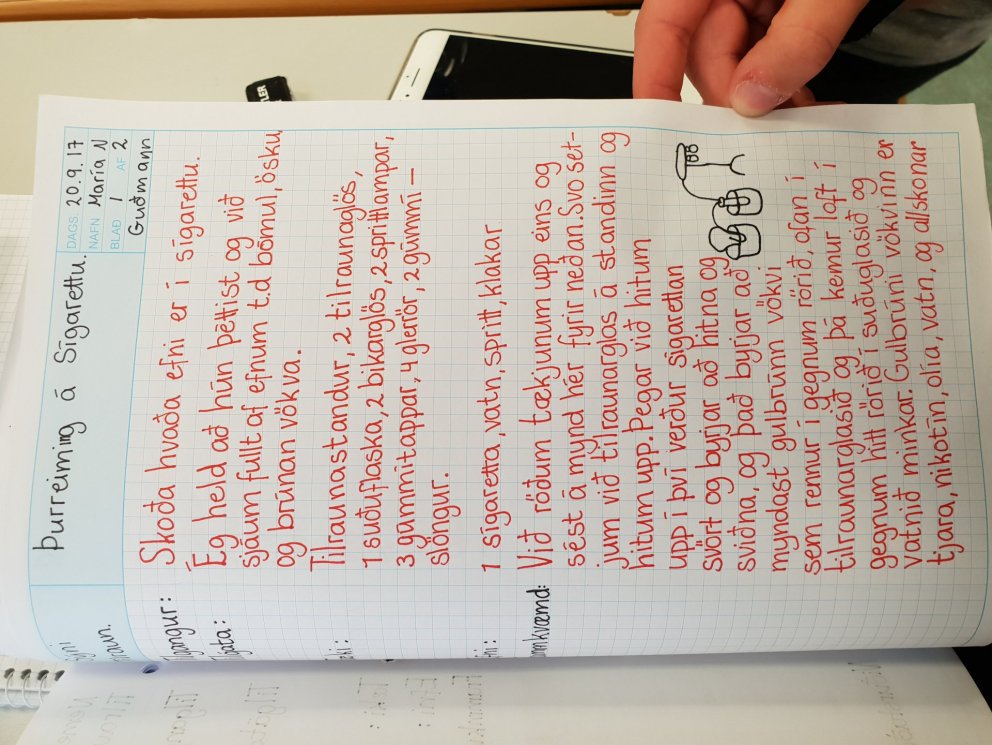 Þurreiming á Sígarettu.
DAGS. 20.9.17
NAFN María N
BLAÐ 1 AF 2
Guðmann
raun.
Skoða hvaða efni er í sígarettu.
Ég held að hún þéttist og við
sjáum fullt af efnum t.d bómul, ösku
og brúnan vökva.
Tilraunastandur, 2 tilraunaglös,
1 suðuflaska, 2 bikarglös, 2 sprittlampar,
3 gúmmitappar, 4 glerrör, 2 gúmmí-
slöngur.
1 sígaretta, vatn, spritt, klakar
Við röðum tækjunum upp eins og
sést á mynd hér fyrir neðan. Svo set-
jum við tilraunarglas á standinn og
hitum upp. Þegar við hitum
upp í því verður sígarettan
svört og byrjar að hitna og
sviðna, og það byrjar að
myndast gulbrúnn vökvi
sem rennur í gegnum rörið, afan í
tilraunarglasið og þá kemur loft í
gegnum hitt rörið í suðuglasið og
vatnið minkar. Gulbrúni vökvinn er
tjara, nikótín, olía, vatn, og allskonar